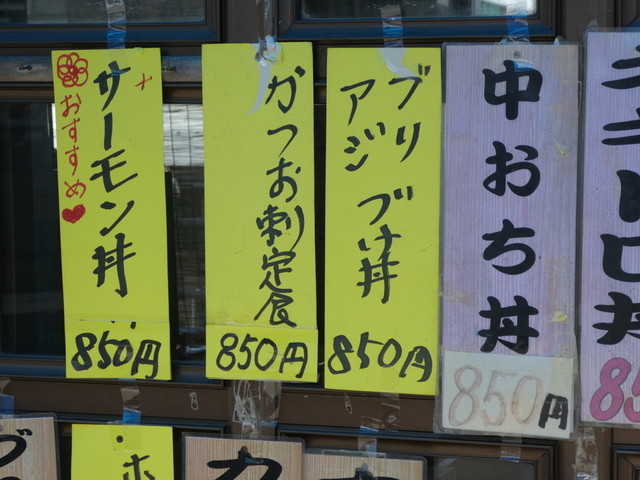 サーモン丼
おすすめ
850円
かつお刺定食
850円
ブリ
アジ
づけ丼
850円
中おち丼
850円
トロ丼
85
ホ